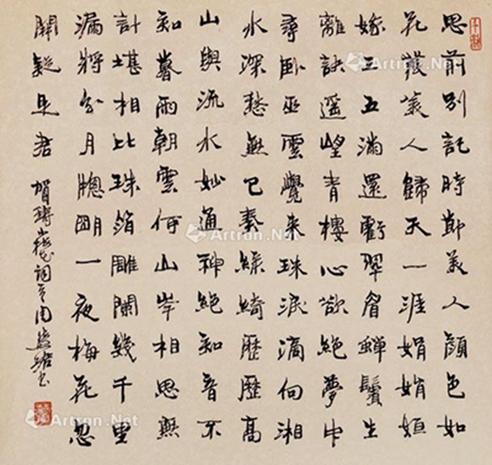 思前別記時節美人顏色如
花發美人歸天一涯娟娟姮
娥三五滿還虧翠眉蟬鬢生
離訣遙望青樓心欲絕夢中
尋臥巫雲覺來珠淚滴向湘
水深愁無已奏綠綺歷歷高
山與流水妙通神絕知音不
知暮雨朝雲何山岑相思無
計堪相比珠箔雕闌幾千里
漏將分月牕明一夜梅花忽
開疑是君 賀鑄 詞 周 書
Artron.Net
Artron.Net
Artron.Net
Artron.Net